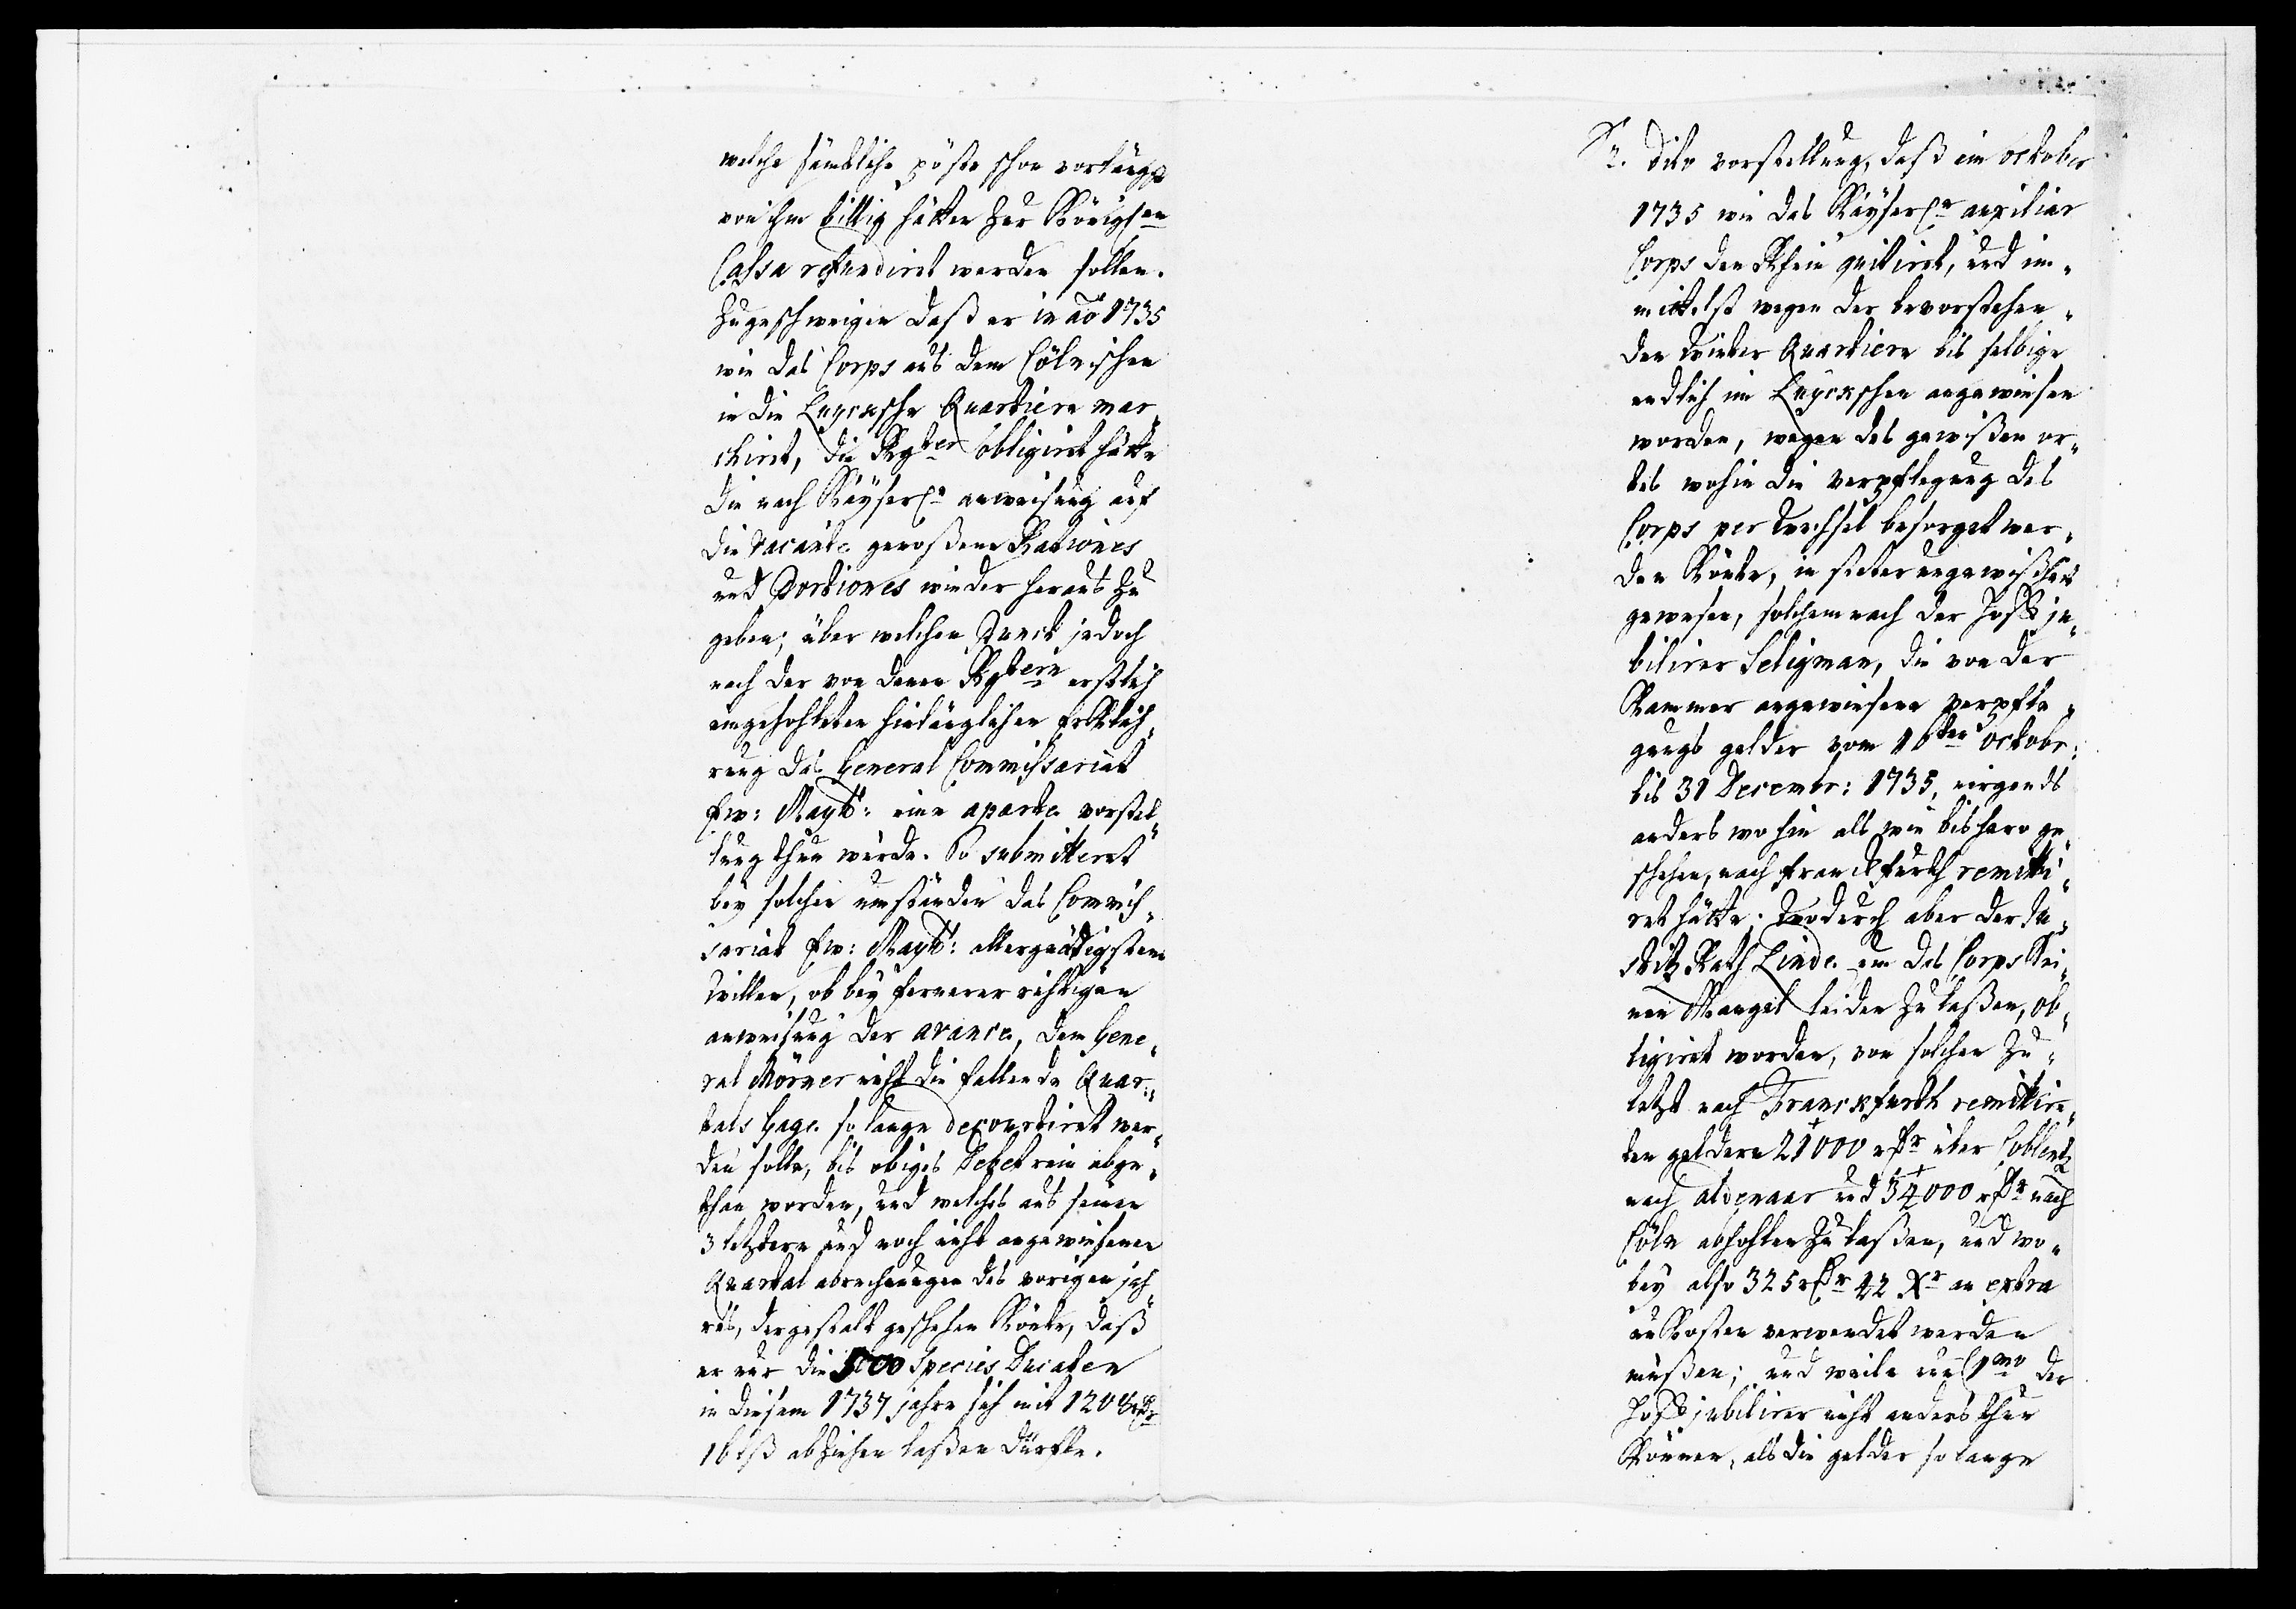 welche sämbtliche pöste schon vorlängst
von ihm billig hätten zur Königlen
Cassa refundiret werden sollen.
Zugeschweigen daß er in ao 1735
wie das Corps aus dem Cölnischen
in die Luycksche Quartiere mar„
chiret, die Rgter obligiret hätte
die nach Käyserl. anweisung auf
die vacante genoßene Rationes
und Portiones wieder heraus zu
geben; über welchen Punct jedoch
nach der von denen Rgtern erstlich
eingehohlten hinlänglichen Erkläh„
rung das General Commissariat
Ew: Maytt: eine aparte vorstel„
lung thun würde. So submitteret
bey solchen umständen das Commis„
sariat Ew: Maytt: allergnädigstem
Willen, ob bey fernerer richtigen
anweisung der avance, dem Gene„
ral Mörner nicht die fallende Quar„
tals Gage so lange decourtiret wer„
den solle, bis obiges Debet rein abge„
than worden, und welches aus seinen
3 letztern und noch nicht angewiesenen
Quartal abrechnungen des vorigen jah„
res, dergestalt geschehen könte, daß
er nur die 500 Species Ducaten
in diesem 1737 jahre sich mit 120
16 ß abziehen laßen dürfte.
2. Dito vorstellung, daß im october
1735 wie das Käyserle auxiliar
Corps den Rhein quitiret, und im„
mittelst wegen der bevorstehen„
den Winter Quartiere bis selbige
endlich im Luyckschen angewiesen
worden, wegen des gewißen or„
tes wohin die verpflegung des
Corps per Wechsel besorget wer„
den könte, in steter ungewisheit
gewesen, solchemnach der Hoff ju„
bilirer Seligman, die von der
Kammer angewiesene verpfle„
gungs gelder vom 16ten octobr:
bis 31 Decembr: 1735, nirgends
anders wohin als wie bishero ge„
schehen, nach Franckfurth remitti„
ret hätte; Wodurch aber der Ju„
stitz Rath Linde um das Corps kei„
nen Mangel leiden zu laßen, ob„
ligiret worden, von solchen zu„
letzt nach Franckfurth remittir„
ten geldern 21000 über Coblentz
nach Aldenaar und 34000 nach
Cöln abhohlen zu laßen, und wo„
bey also 325 42 Xr an extra
unkosten verwendet werden
müßen; und weile nun 1mo der
Hoff jubilirer nicht anders thun
können, als die gelder so lange